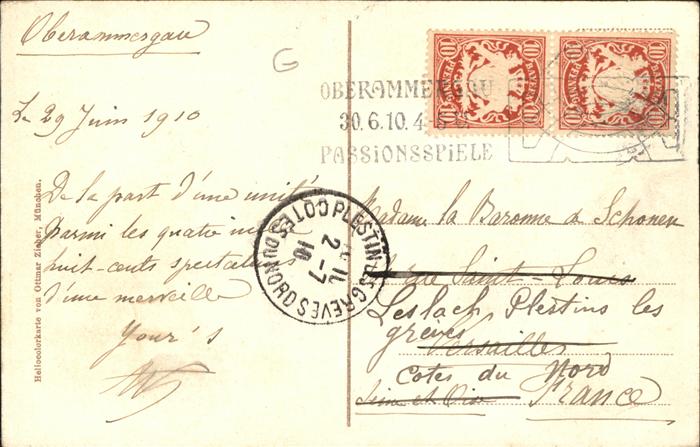 Oberammergau
Le 29 Juin 1910
De la part d'une unité
parmi les quatre mille
huit-cents spectateurs
d'une merveille
Your's
Heliocolorkarte von Ottmar Zieher, München.
G
OBERAMMERGAU
30.6.10. 4-5
PASSIONSSPIELE
10 BAYERN 10 PFENNIG
10 BAYERN 10 PFENNIG
PLESTIN-LES-GRÈVES
COTES DU NORD
11
2-7
10
Madame la Baronne de Schonen
rue Saint-Louis
Leslach Plestins les
greves
Versailles
Cotes du Nord
Seine et Oise France